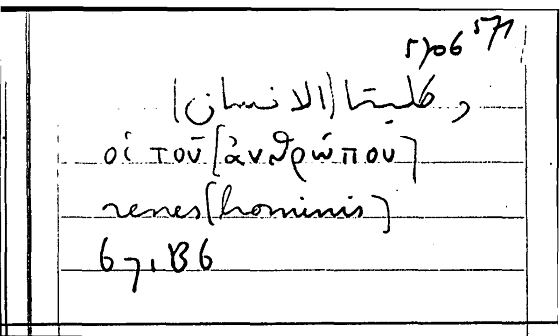 5706 571
و كليتا (الانسان)
οἱ τοῦ [ἀνθρώπου]
renes [hominis]
67, B6